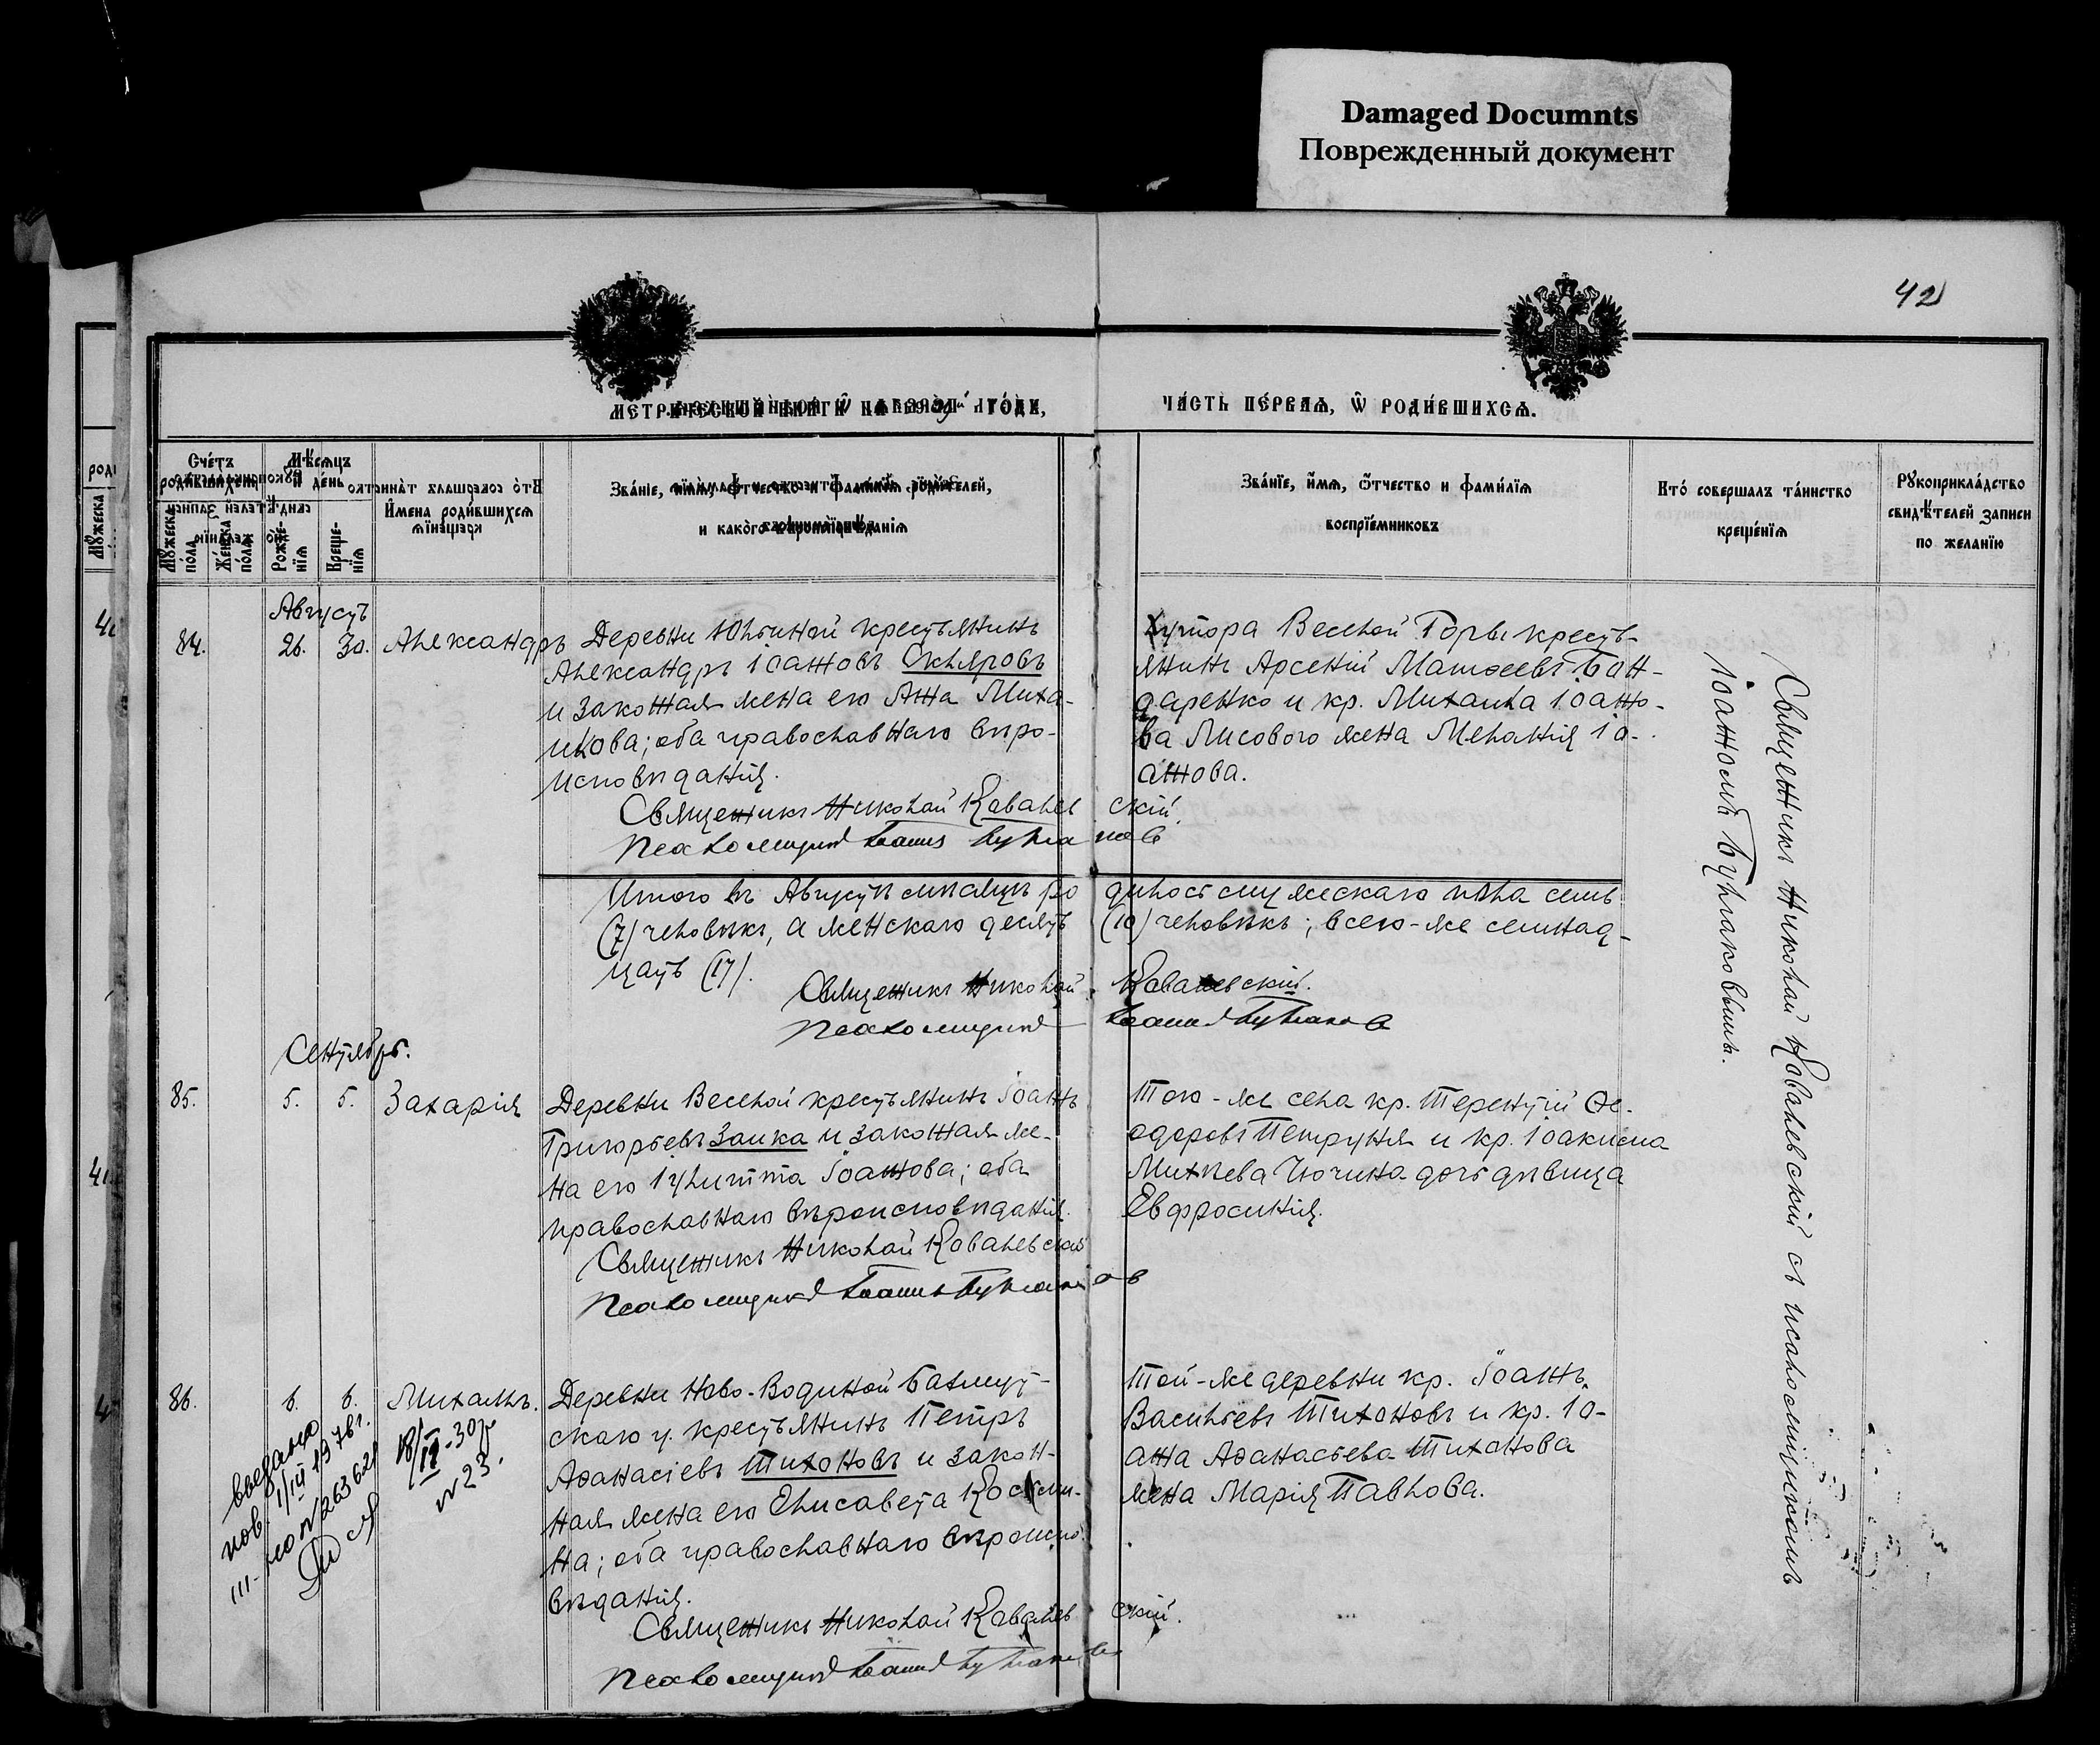 Damaged Documnts
Поврежденный документ
42
МЕТРИЧЕСКОЙ КНИГИ НА 1909й ГОДЪ,
ЧА́СТЬ ПЕ́РВАѦ, Ѿ РОДИ́ВШИХСѦ.
Сче́тъ родившихсѧ
Мꙋжеска по́ла
Же́нска по́ла
Мѣ́сѧцъ и де́нь
Рожде́нїѧ
Креще́нїѧ
Имена роди́вшихсѧ
Зва́нїе, и́мѧ, ѻ́тчество и фами́лїѧ роди́телей,
и како́гѡ вѣроисповѣ́данїѧ
Зва́нїе, и́мѧ, ѻ́тчество и фами́лїѧ
воспрїе́мниковъ
Кто̀ соверша́лъ та́инство
креще́нїѧ
Рꙋкоприкла́дство
свидѣ́телей записи
по жела́нїю
Августъ
84. 26. 30. Александръ
Деревни Юльиной крестьянинъ
Александръ Іоанновъ Скляровъ
и законная жена его Анна Миха-
илова; оба православнаго вѣро-
исповѣданія.
Священникъ Николай Ковалевскій.
Псаломщикъ Іоаннъ Булгаковъ
Хутора Веселой Горы кресть-
янинъ Арсеній Матѳеевъ Бон-
даренко и кр. Михаила Іоанно-
ва Лисового жена Меланія Іо-
аннова.
Итого въ Августѣ мѣсяцѣ родилось мужескаго пола семь
(7) человѣкъ, а женскаго десять (10) человѣкъ; всего-же семнад-
цать (17).
Священникъ Николай Ковалевскій.
Псаломщикъ Іоаннъ Булгаковъ
Сентябрь.
85. 5. 5. Захарія
Деревни Веселой крестьянинъ Іоаннъ
Григорьевъ Заика и законная же-
на его Іулитта Іоаннова; оба
православнаго вѣроисповѣданія.
Священникъ Николай Ковалевскій
Псаломщикъ Іоаннъ Булгаковъ
Того-же села кр. Терентій Ѳе-
одоровъ Петруня и кр. Іоакима
Михѣева Чючина дочь дѣвица
Евфросинія.
86. 6. 6. Михаилъ.
Деревни Ново-Водиной Бахмут-
скаго у. крестьянинъ Петръ
Аѳанасіевъ Тихоновъ и закон-
ная жена его Елисавета Косми-
на; оба православнаго вѣроиспо-
вѣданія.
Священникъ Николай Ковалевскій.
Псаломщикъ Іоаннъ Булгаковъ
Той-же деревни кр. Іоаннъ
Васильевъ Тихоновъ и кр. Іо-
анна Аѳанасьева Тихонова
жена Марія Павлова.
18/II-30г
№23.
1/III 1976г.
III-НО №263621
Священникъ Николай Ковалевскій съ псаломщикомъ
Іоанномъ Булгаковымъ.